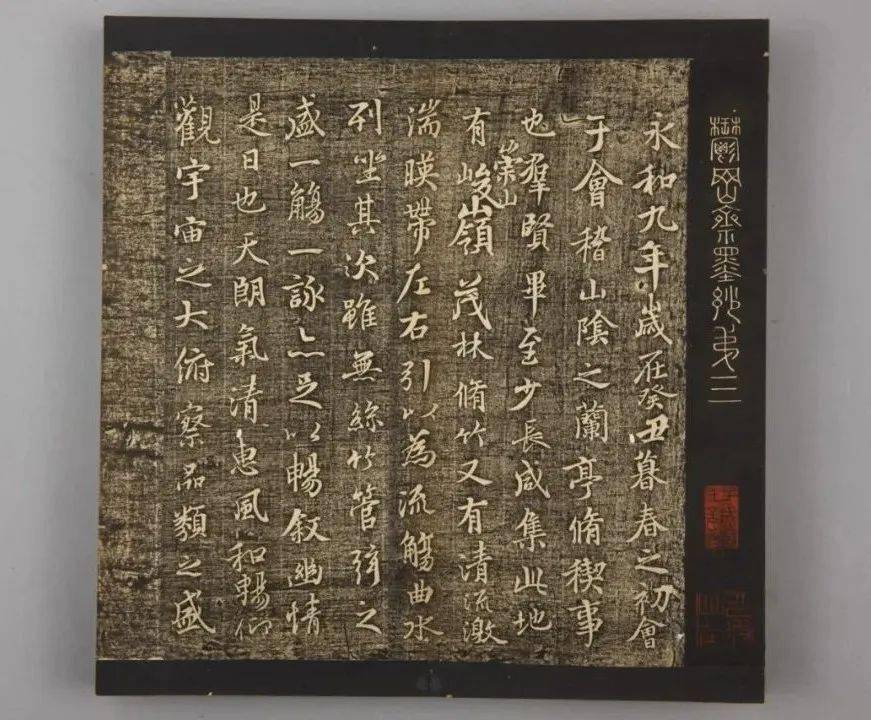 鬱岡齋墨妙弟二
永和九年歲在癸丑暮春之初會
于會稽山陰之蘭亭脩稧事
也羣賢畢至少長咸集此地
有崇山峻嶺茂林脩竹又有清流激
湍暎帶左右引以為流觴曲水
列坐其次雖無絲竹管弦之
盛一觴一詠亦足以暢敘幽情
是日也天朗氣清惠風和暢仰
觀宇宙之大俯察品類之盛